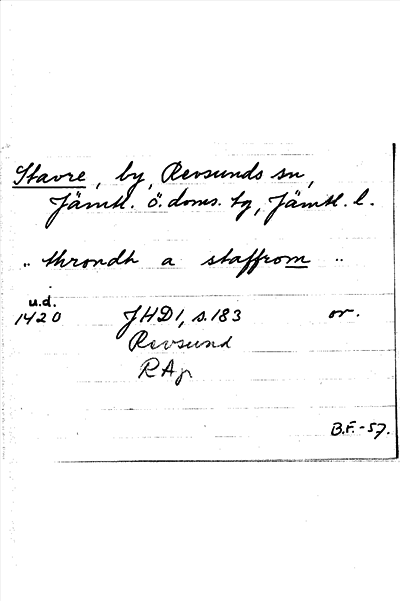 Stavre, by, Revsunds sn,
Jämtl. ö. doms. tg, Jämtl. l.
.. throndh a staffrom ..
u.d.
1420 JHD1, s.183 or.
Revsund
RAp
B.F.-57.